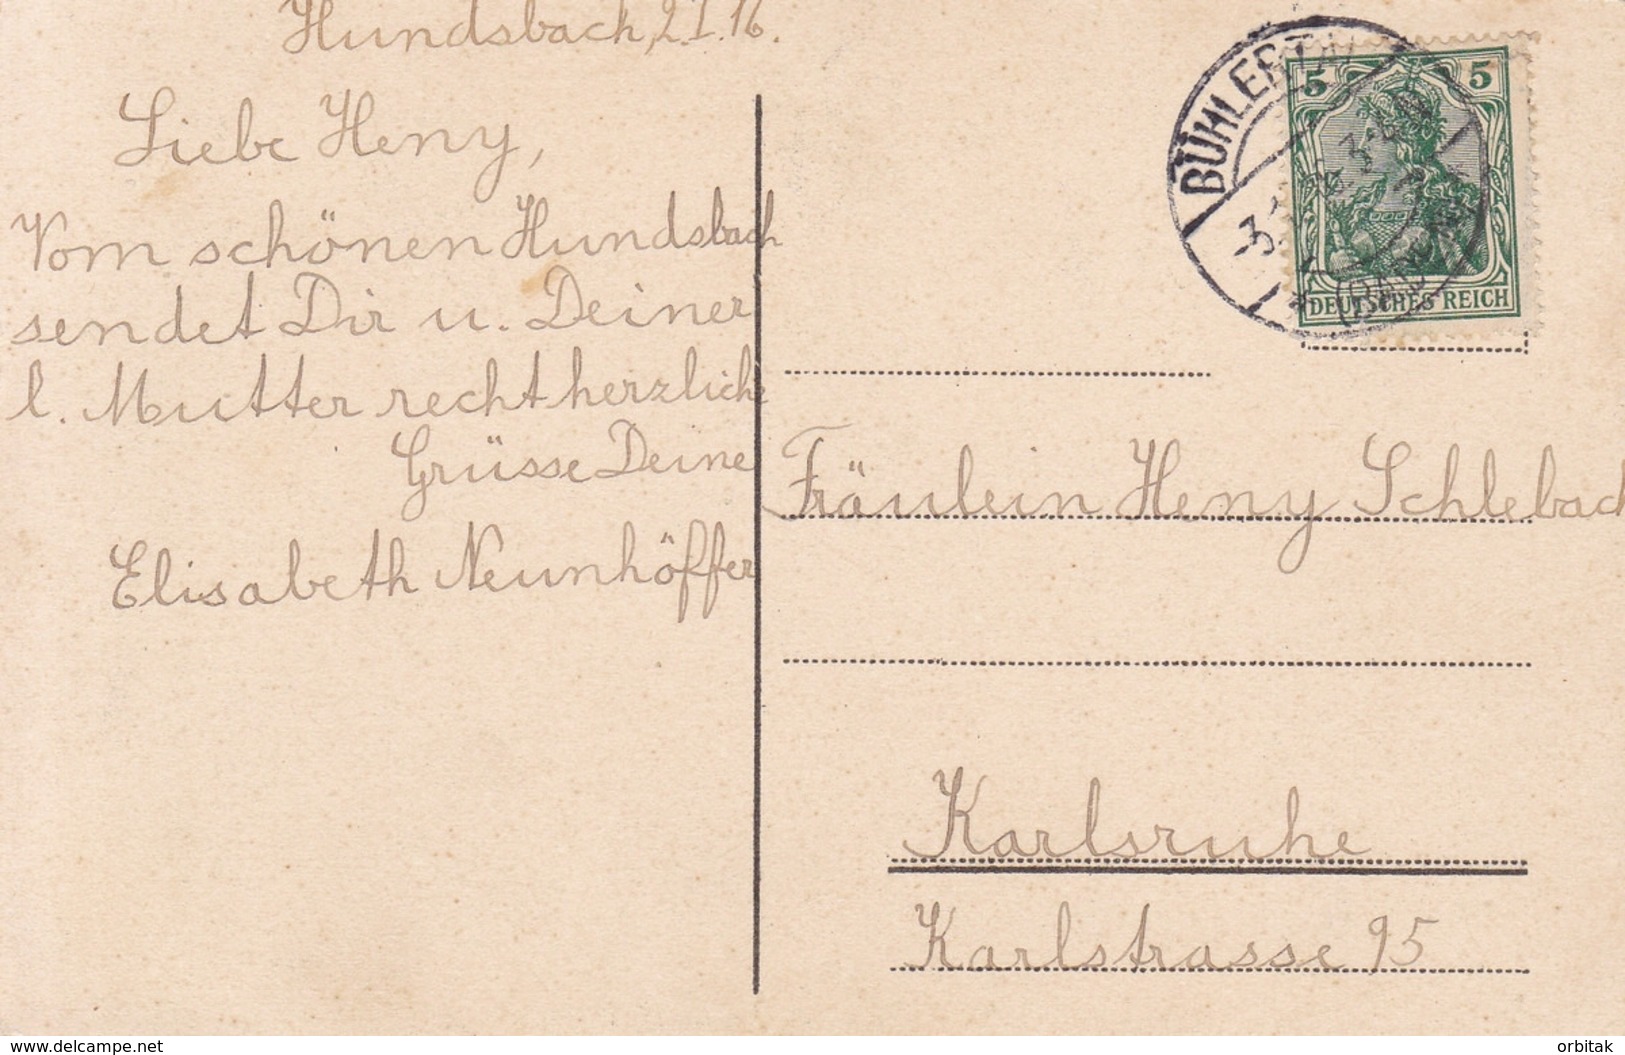 Hundsbach, 2.I.16.
Liebe Heny,
Vom schönen Hundsbach
sendet Dir u. Deiner
l. Mutter recht herzliche
Grüsse Deine
Elisabeth Neunhöffer
BÜHLERTAL
(BADEN)
5 5
DEUTSCHES REICH
Fräulein Heny Schlebach
Karlsruhe
Karlstrasse 95
www.delcampe.net
orbitak